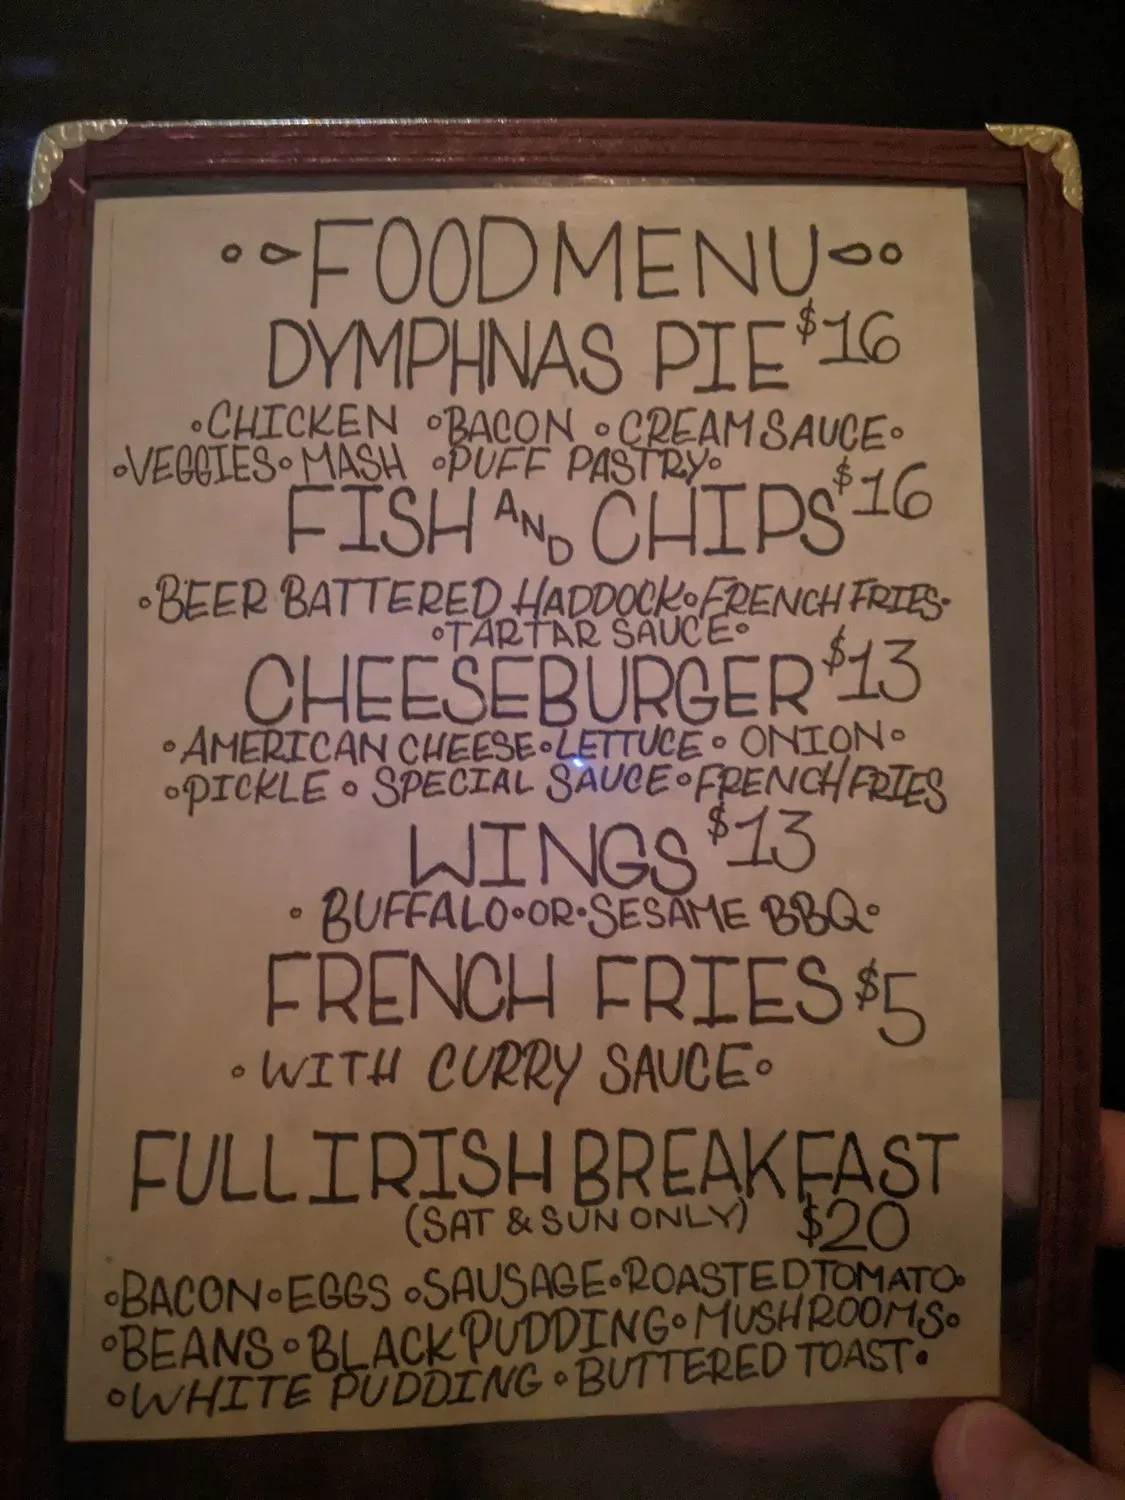 FOOD MENU
DYMPHNAS PIE $16
°CHICKEN °BACON °CREAM SAUCE°
°VEGGIES° MASH °PUFF PASTRY°
FISH AND CHIPS $16
°BEER BATTERED HADDOCK°FRENCH FRIES°
°TARTAR SAUCE°
CHEESEBURGER $13
°AMERICAN CHEESE°LETTUCE° ONION°
°PICKLE ° SPECIAL SAUCE°FRENCH FRIES
WINGS $13
° BUFFALO°OR°SESAME BBQ°
FRENCH FRIES $5
°WITH CURRY SAUCE°
FULL IRISH BREAKFAST
(SAT & SUN ONLY) $20
°BACON°EGGS °SAUSAGE°ROASTED TOMATO°
°BEANS °BLACK PUDDING°MUSHROOMS°
°WHITE PUDDING °BUTTERED TOAST°